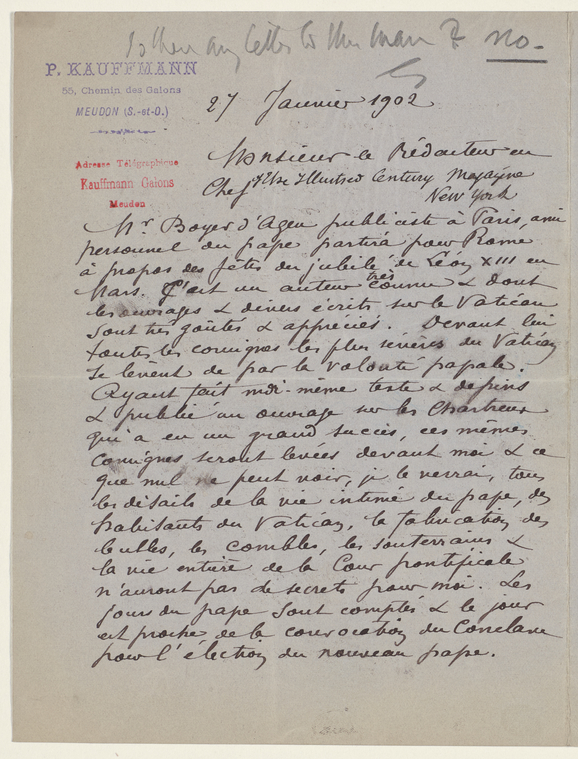 Is there any letter to this man? no.
P. KAUFFMANN
55, Chemin des Galons
MEUDON (S.-et-O.)
27 Janvier 1902
Adresse Télégraphique
Kauffmann Galons
Meudon
Monsieur le Rédacteur en
Chef The Illustred Century Magazine
New York
Mr Boyer d'Agen publiciste à Paris, ami
personnel du pape partira pour Rome
à propos des fêtes du jubilé de Léon XIII en
Mars. C'est un auteur très connu & dont
les ouvrages & divers écrits sur le Vatican
sont très goûtés & appréciés. Devant lui
toutes les consignes les plus sévères du Vatican
se lèvent de par la volonté papale.
Ayant fait moi-même texte & dessins
& publié un ouvrage sur les Chartreux
qui a eu un grand succès, ces mêmes
consignes seront levées devant moi & ce
que nul ne peut voir, je le verrai, tous
les détails de la vie intime du pape, des
habitants du Vatican, la fabrication des
bulles, les combles, les souterrains &
la vie entière de la Cour pontificale
n'auront pas de secrets pour moi. Les
jours du pape sont comptés & le jour
est proche de la convocation du Conclave
pour l'élection du nouveau pape.